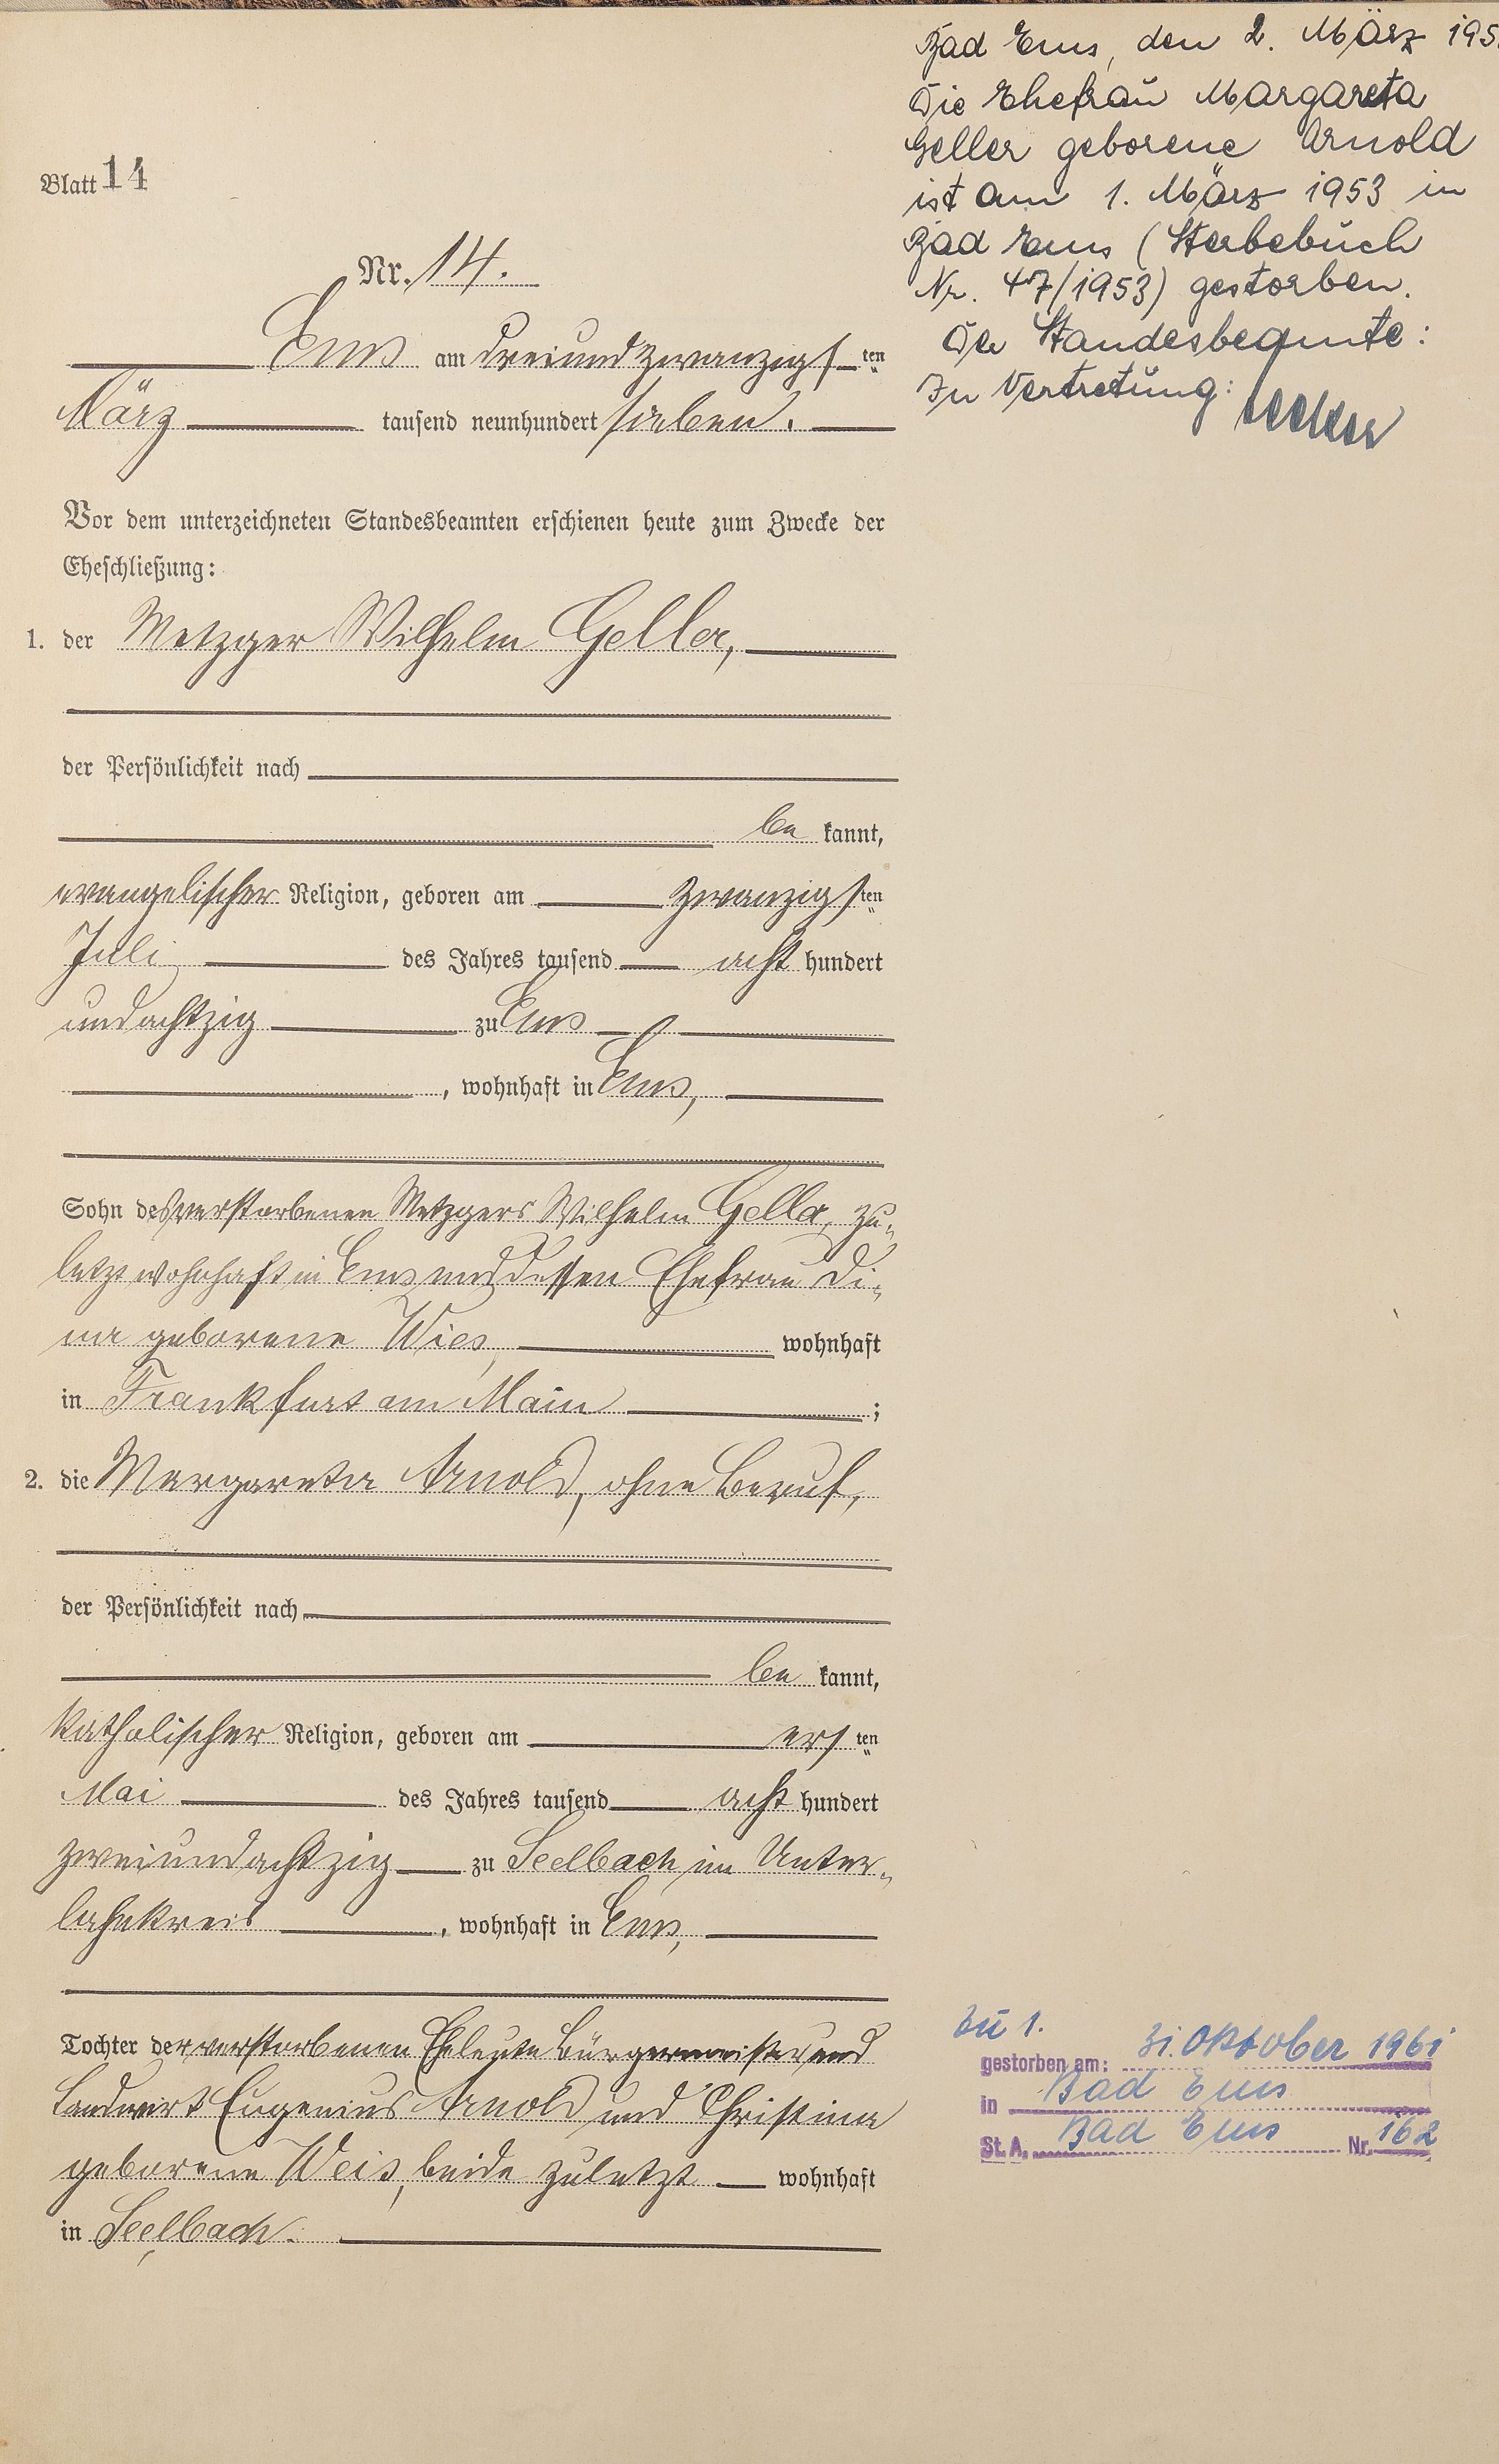 Blatt 14
Nr. 14.
Ems am dreiundzwanzigsten
März tausend neunhundert sieben.
Vor dem unterzeichneten Standesbeamten erschienen heute zum Zwecke der
Eheschließung:
1. der Metzger Wilhelm Geller,
der Persönlichkeit nach
be kannt,
evangelischer Religion, geboren am zwanzigsten
Juli des Jahres tausend acht hundert
undachtzig zu Ems
, wohnhaft in Ems,
Sohn des verstorbenen Metzgers Wilhelm Geller, zu-
letzt wohnhaft in Ems und dessen Ehefrau Di-
na geborene Wies, wohnhaft
in Frankfurt am Main ;
2. die Margareta Arnold, ohne Beruf,
der Persönlichkeit nach
be kannt,
katholischer Religion, geboren am ersten
Mai des Jahres tausend acht hundert
zweiundachtzig zu Seelbach im Unter-
lahnkreis , wohnhaft in Ems,
Tochter der verstorbenen Eheleute Bürgermeister und
Landwirt Eugenius Arnold und Christina
geborene Weis, beide zuletzt wohnhaft
in Seelbach.
Bad Ems, den 2. März 195
Die Ehefrau Margareta
Geller geborene Arnold
ist am 1. März 1953 in
Bad Ems (Sterbebuch
Nr. 47/1953) gestorben.
Der Standesbeamte:
In Vertretung:
Zu 1.
gestorben am: 31. Oktober 1961
in Bad Ems
St. A. Bad Ems Nr. 162